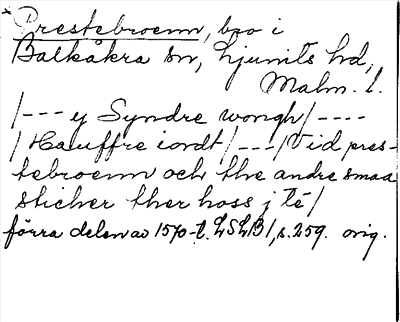 Prestebroenn, bro i
Balkåkra sn, Ljunits hd,
Malm. l.
/--- y Syndre wongh/----
/Hauffre iordt/---/Vid pres-
tebroenn och the andre smaa
sticher ther hoss j té/
förra delen av 1570-t. LSLB1, s. 259. orig.